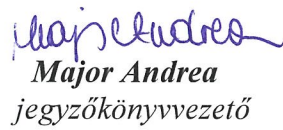 Major Andrea
Major Andrea
jegyzőkönyvvezető